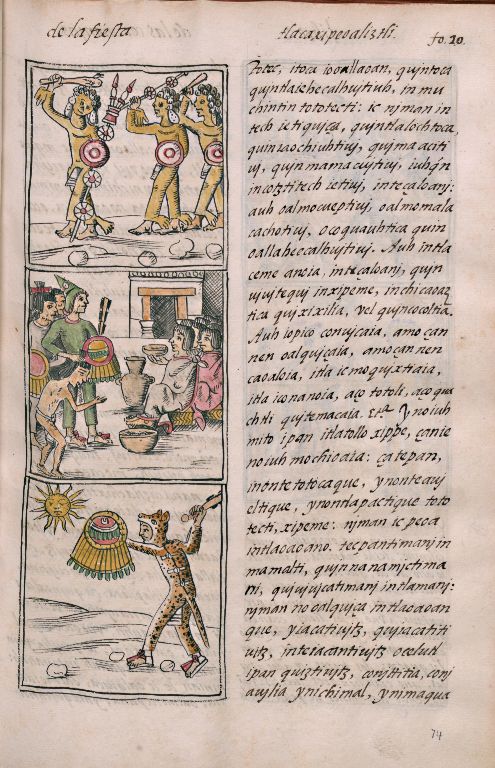 de la fiesta
tlacaxipeoaliztli.
fo. 20.
Totec, itoca iooallaoan, quintoca
quintlatzhecalhuytiuh, in mu
chintin tototecti: ic njman in
tech ietiquiça, quintlalochtoca,
quinaochiuhtiuj, quimaaciti
uj, quinmamacujtiuj, iuhq̃n
incotztitech ietiuj, intecaloanj:
auh oalmocueptiuj, oalmomala
cachotiuj, ocoquauhtica quin
oallahecalhujtiuj. Auh intla
ceme anoia, intecaloanj, quin
ujujtequi inxipeme, inchicaoaz
tica quixixilia, vel quincocoltia.
Auh iopico conujcaia, amo çan
nen oalquiçaia, amo çan nen
caoaloia, itla ic moquixtiaia,
itla iconanoia, aço totoli, aço qua
chtli quitemacaia. &c. Yno iuh
mito ipan itlatollo xippe, ça nie
no iuh mochioaia: çatepan,
inonte totocaque, ynonteauj
eltique, ynontlapactique toto
tecti, xipeme: njman ic peoa
intlaoaoano. tecpantimanj in
mamalti, quinnanamjctima
ni, quiujujcatimanj intlamanj:
njman no oalquiça intlaoaoan
que, yiacatiujtz, quijacatiti
uitz, inteiacantiujtz ocelutl
ipan quiztiujtz, conjttitia, conj
aujlia ynichimal, ynimaqua
74